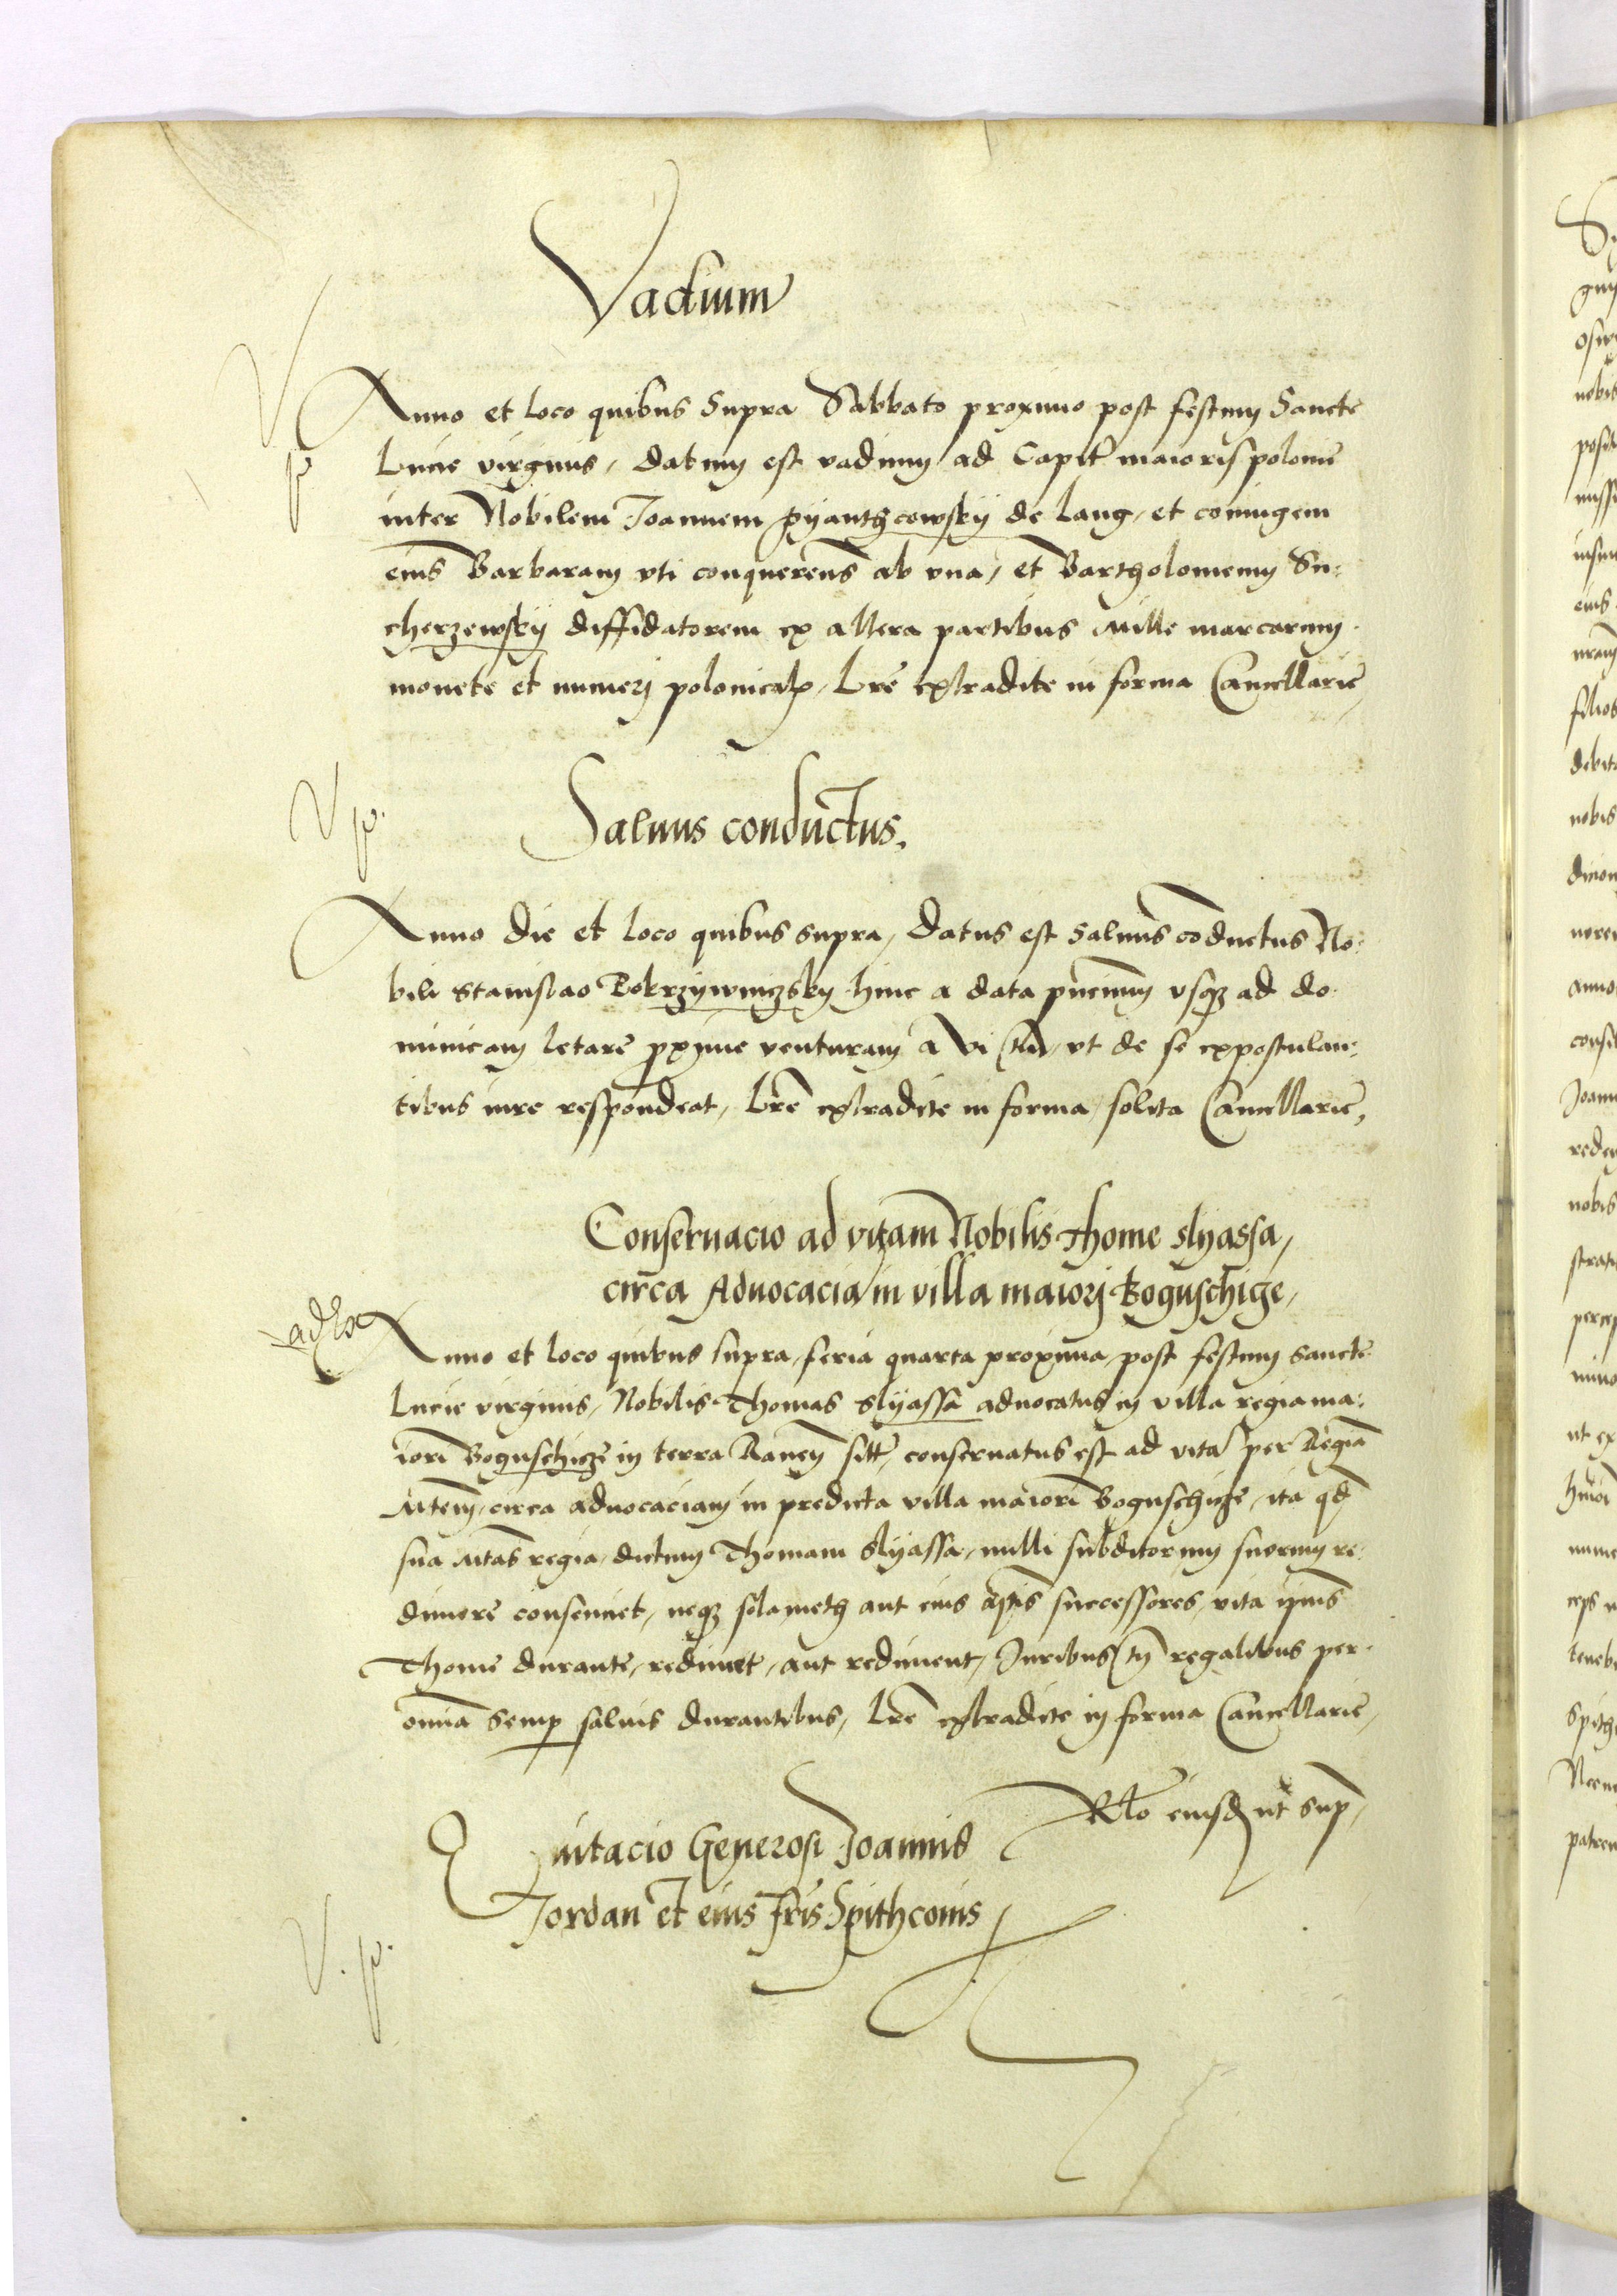 Vadium
Anno et loco quibus supra Sabbato proximo post festum Sancte
Lucie virginis, datum est vadium ad Capit maioris polonie
inter Nobilem Joannem pyanthcowsky de lang, et coniugem
eius Barbaram vti conquerens ab vna, et Bartholomeum Su:
cherzewsky diffidatorem ex altera partibus Mille marcarum
monete et numeri polonical, Lre extradite in forma Cancellarie,
V p.
Saluus conductus.
Anno die et loco quibus supra, datus est saluus coductus No:
bili Stanislao hinc a data pncium vsq ad do
minicam letare pxime venturam a vi tn, vt de se expostulan:
tibus iure respondeat, Lre extradite in forma solita Cancellarie,
Conseruacio ad vitam Nobilis Thome slyassa,
circa Aduocacia in villa maiori Boguschicze,
Anno et loco quibus supra, feria quarta proxima, post festum sancte
Lucie virginis, Nobilis Thomas slyassa aduocatus in villa regia ma:
iori Boguschicze in terra Rauen sitt, conseruatus est ad vita per Regia
Mtem, circa aduocaciam in predicta villa maiori Boguschicze, ita qd
sua Mtas regia, dictum Thomam Slyassa, nulli subditorum suorum re:
dimere consenciet, neq solameth aut eius successores, vita ipius
Thome durante, redimet, aut rediment, Juribus tn regalibus per
omnia semp saluis durantibus, Lre extradite in forma Cancellarie,
Rlo eiusd ut sup,
Quitacio Generosi Joannis
Jordan et eius fris Spithconis
V. p.